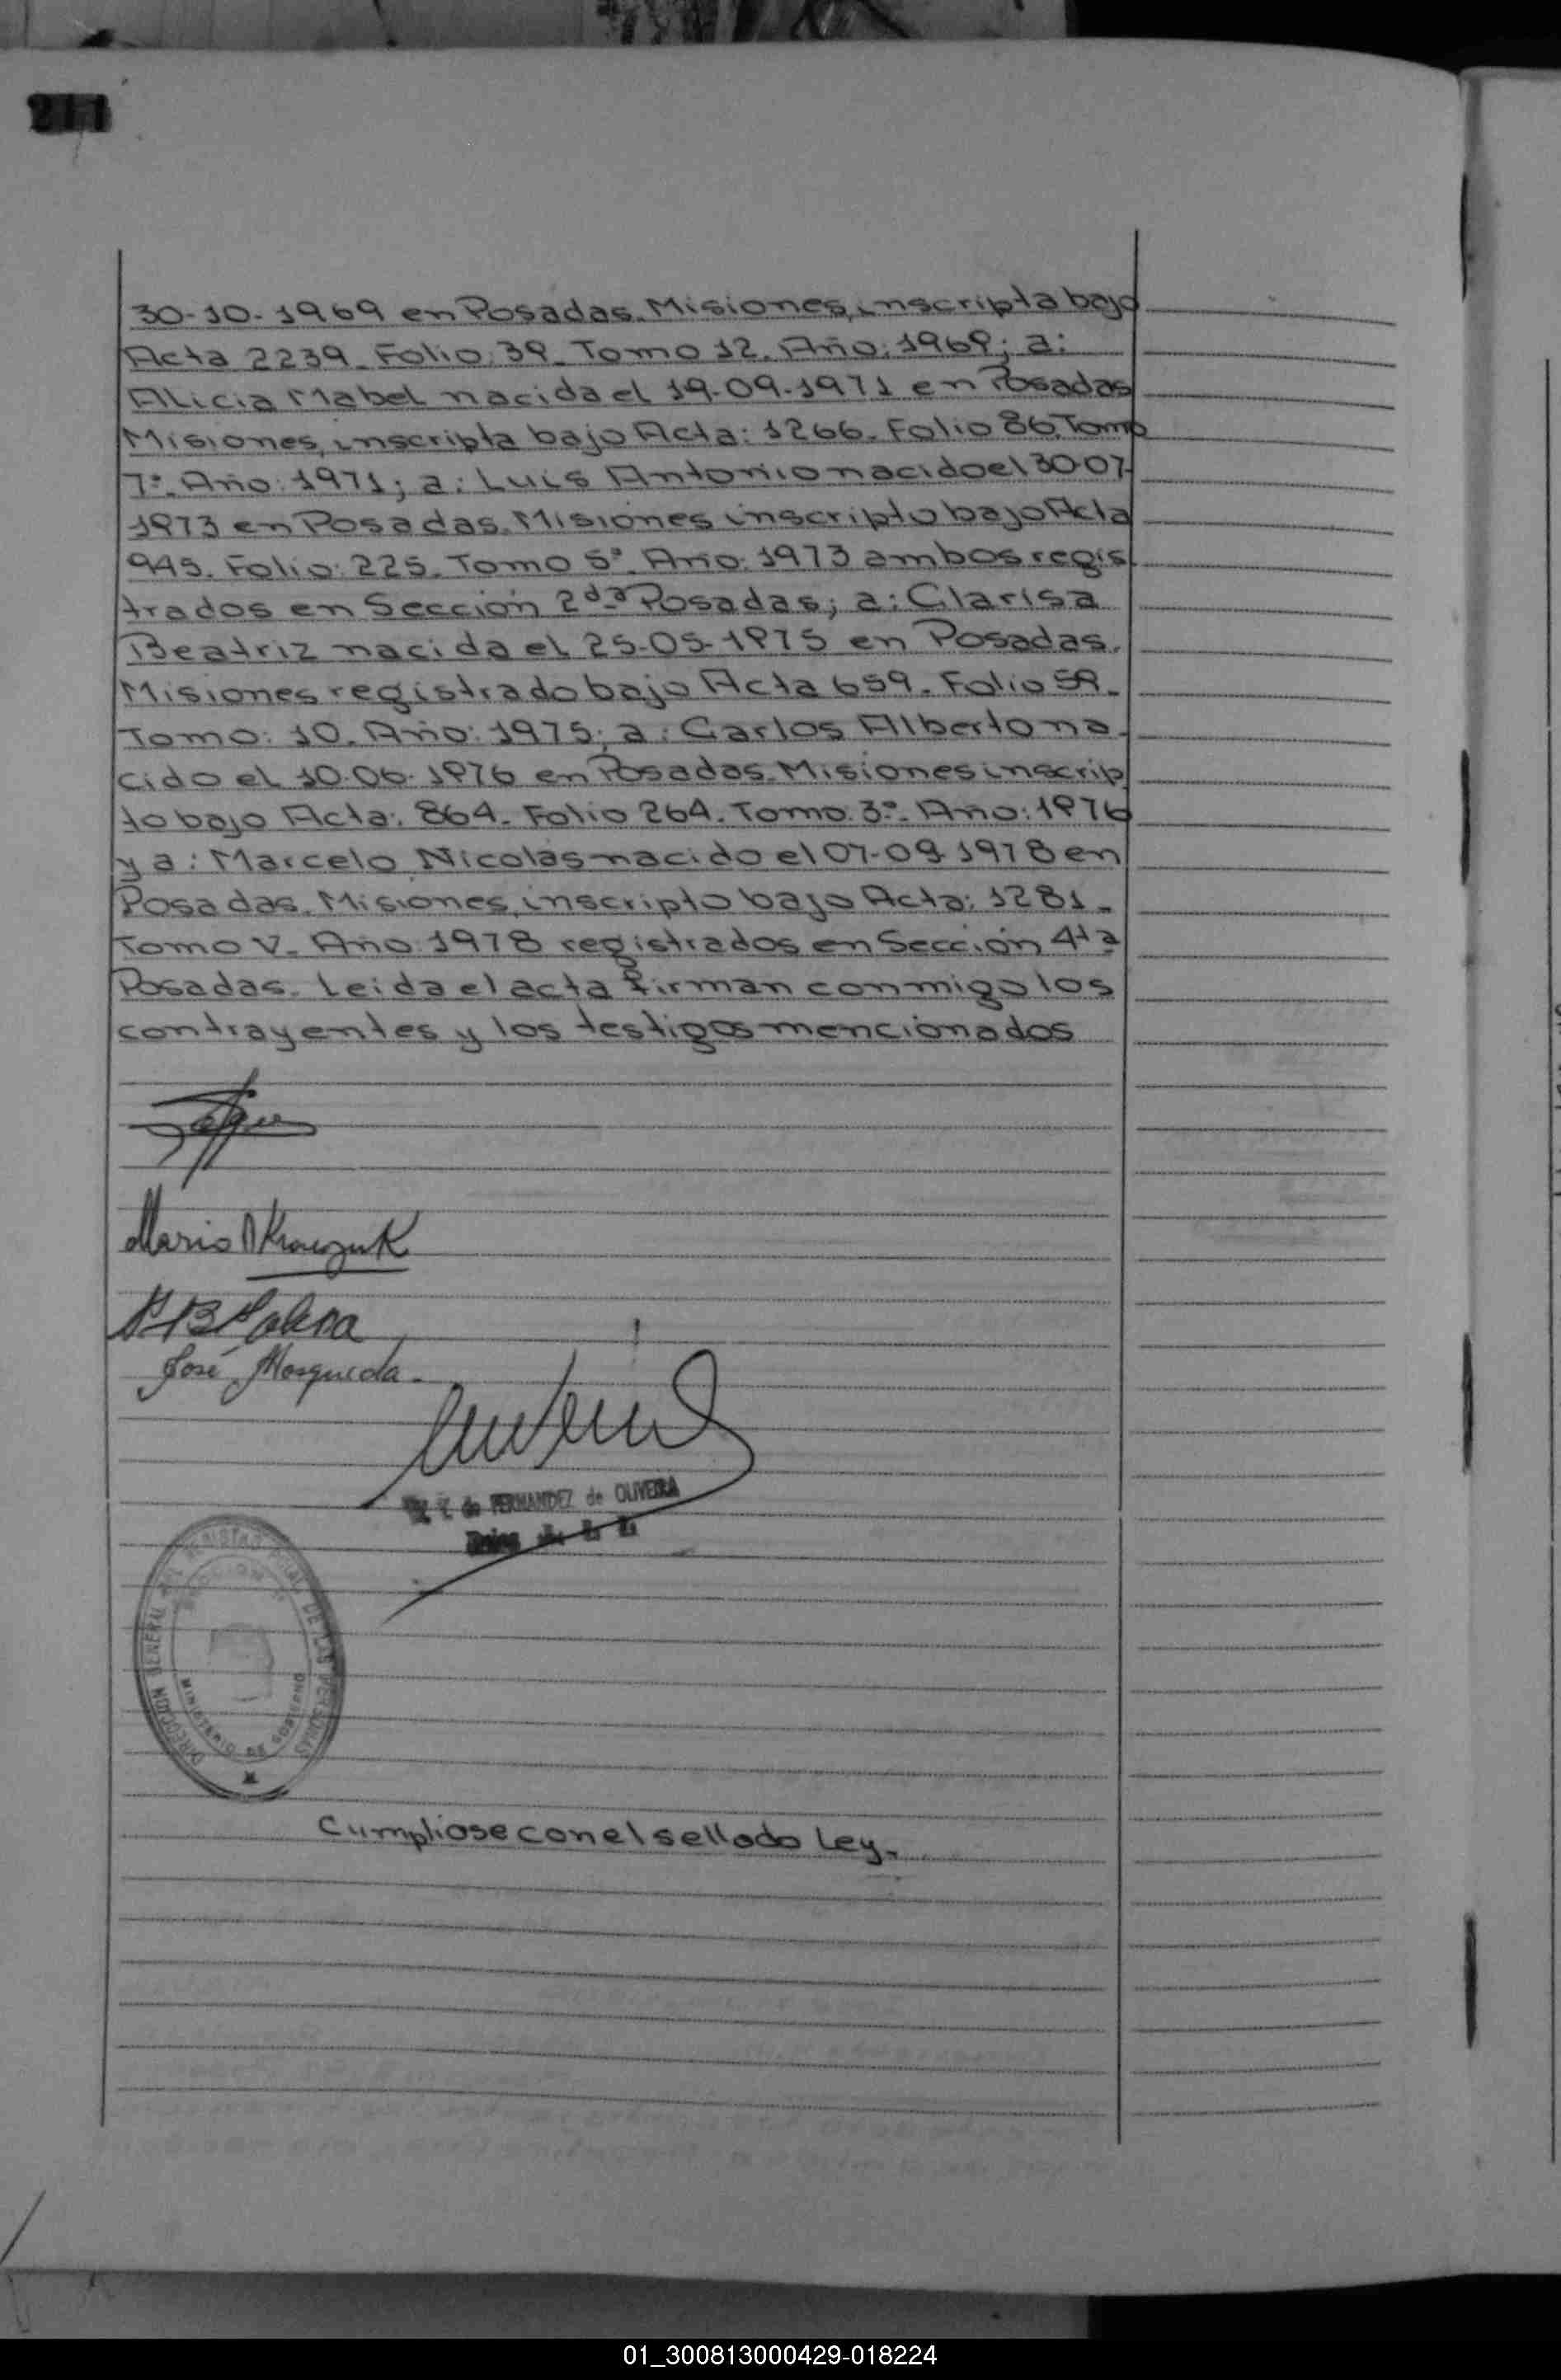 211
30-10-1969 en Posadas. Misiones, inscripta bajo
Acta 2239. Folio: 39. Tomo 12. Año: 1969; a:
Alicia Mabel nacida el 19-09-1971 en Posadas
Misiones, inscripta bajo Acta: 1266. Folio 86. Tomo
7º. Año: 1971; a: Luis Antonio nacido el 30-07-
1973 en Posadas. Misiones inscripto bajo Acta
945. Folio: 225. Tomo 5º. Año: 1973 ambos regis
trados en Sección 2da Posadas; a: Clarisa
Beatriz nacida el 25-05-1975 en Posadas.
Misiones registrado bajo Acta 659. Folio 59.
Tomo: 10. Año: 1975; a: Carlos Alberto na-
cido el 10-06-1976 en Posadas. Misiones inscrip
to bajo Acta: 864. Folio 264. Tomo: 3º. Año: 1976
y a: Marcelo Nicolás nacido el 07-09-1978 en
Posadas. Misiones, inscripto bajo Acta: 1281.
Tomo V. Año: 1978 registrados en Sección 4ta
Posadas. Leida el acta firman conmigo los
contrayentes y los testigos mencionados
Mario
José Mosqueda.
de FERNANDEZ de OLIVEIRA
DIRECCION GENERAL DEL REGISTRO DE LAS PERSONAS
SECCION
MINISTERIO DE GOBIERNO
Cumpliose con el sellado Ley.
01_300813000429-018224